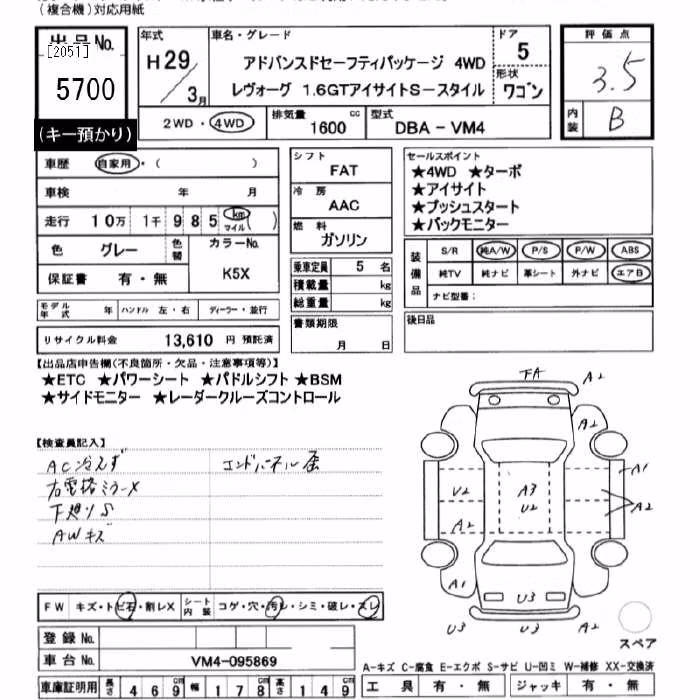 (複合機)対応用紙
出品No.
[2051]
5700
(キー預かり)
年式
H29/3月
車名・グレード
アドバンスドセーフティパッケージ 4WD
レヴォーグ 1.6GTアイサイトS-スタイル
ドア
5
形状
ワゴン
評価点
3.5
内装
B
2WD・4WD
排気量
1600 cc
型式
DBA-VM4
車歴 自家用・( )
車検 年 月
走行 10万 1千 985 km マイル ( )
色 グレー 色替
カラーNo.
K5X
保証書 有・無
モデル年式 年 ハンドル 左・右 ディーラー・並行
リサイクル料金 13,610 円 預託済
シフト
FAT
冷房
AAC
燃料
ガソリン
乗車定員 5 名
積載量 kg
総重量 kg
書類期限
月 日
セールスポイント
★4WD ★ターボ
★アイサイト
★プッシュスタート
★バックモニター
装備品
S/R 純A/W P/S P/W ABS
純TV 純ナビ 革シート 外ナビ エアB
ナビ型番:
後日品
【出品店申告欄(不良箇所・欠品・注意事項等)】
★ETC ★パワーシート ★パドルシフト ★BSM
★サイドモニター ★レーダークルーズコントロール
【検査員記入】
AC冷えず
右電格ミラーX
下廻りS
AWキズ
エンドパネル歪
FA
A2
A2
A1
A2
U2
A2
A3
U2
A1
A2
U3
U3
U3
スペア
FW キズ・トビ石・割レX
シート内装 コゲ・穴・汚レ・シミ・破レ・スレ
登録No.
車台No. VM4-095869
車庫証明用 長さ 469 cm 幅 178 cm 高さ 149 cm
A-キズ C-腐食 E-エクボ S-サビ U-凹ミ W-補修 XX-交換済
工具 有・無 ジャッキ 有・無